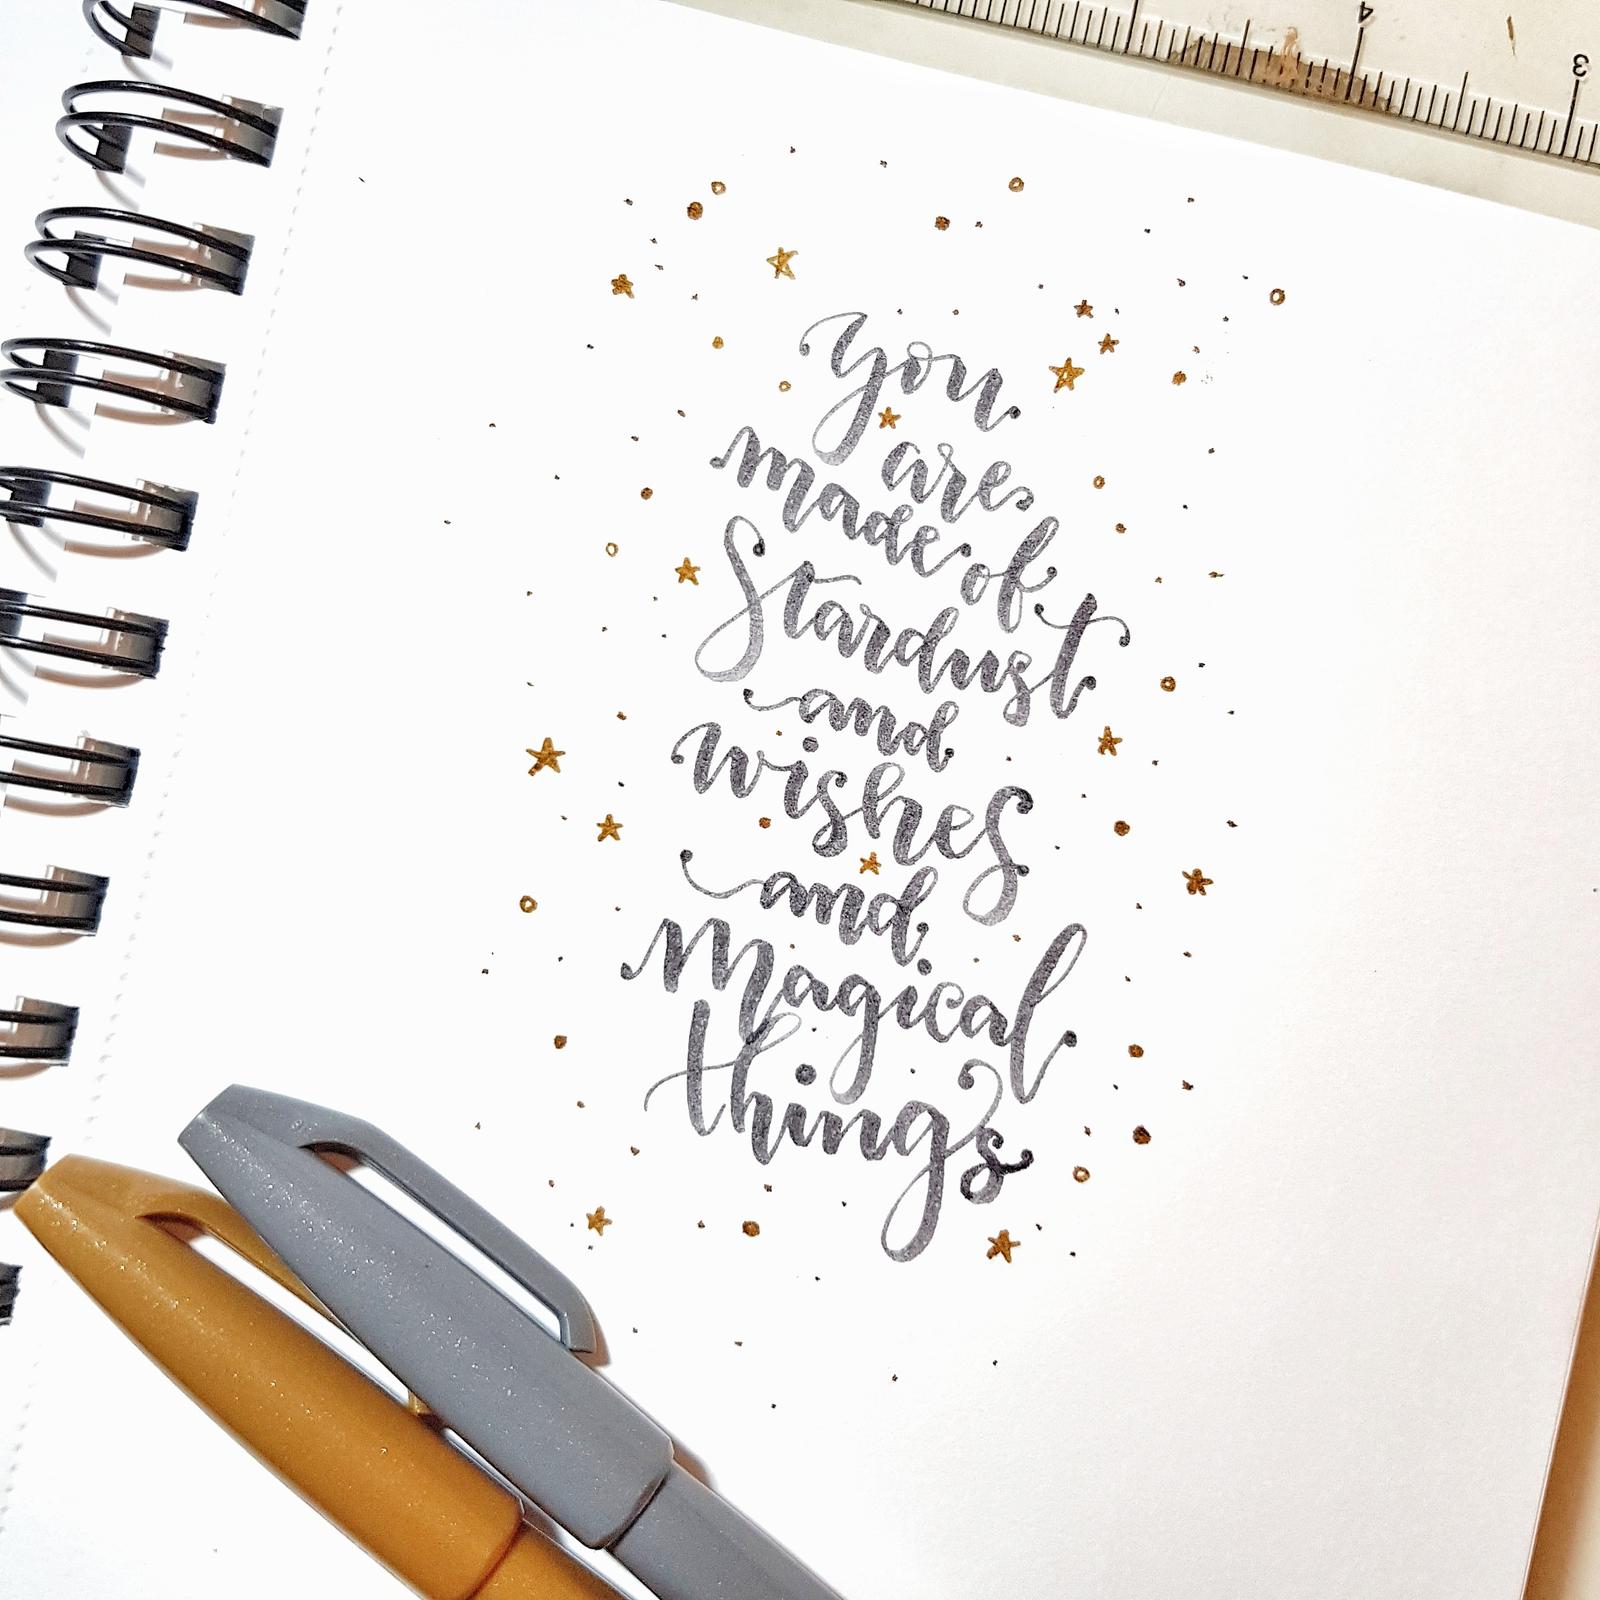 You
are
made of
Stardust
and
wishes
and
Magical
things
4
3